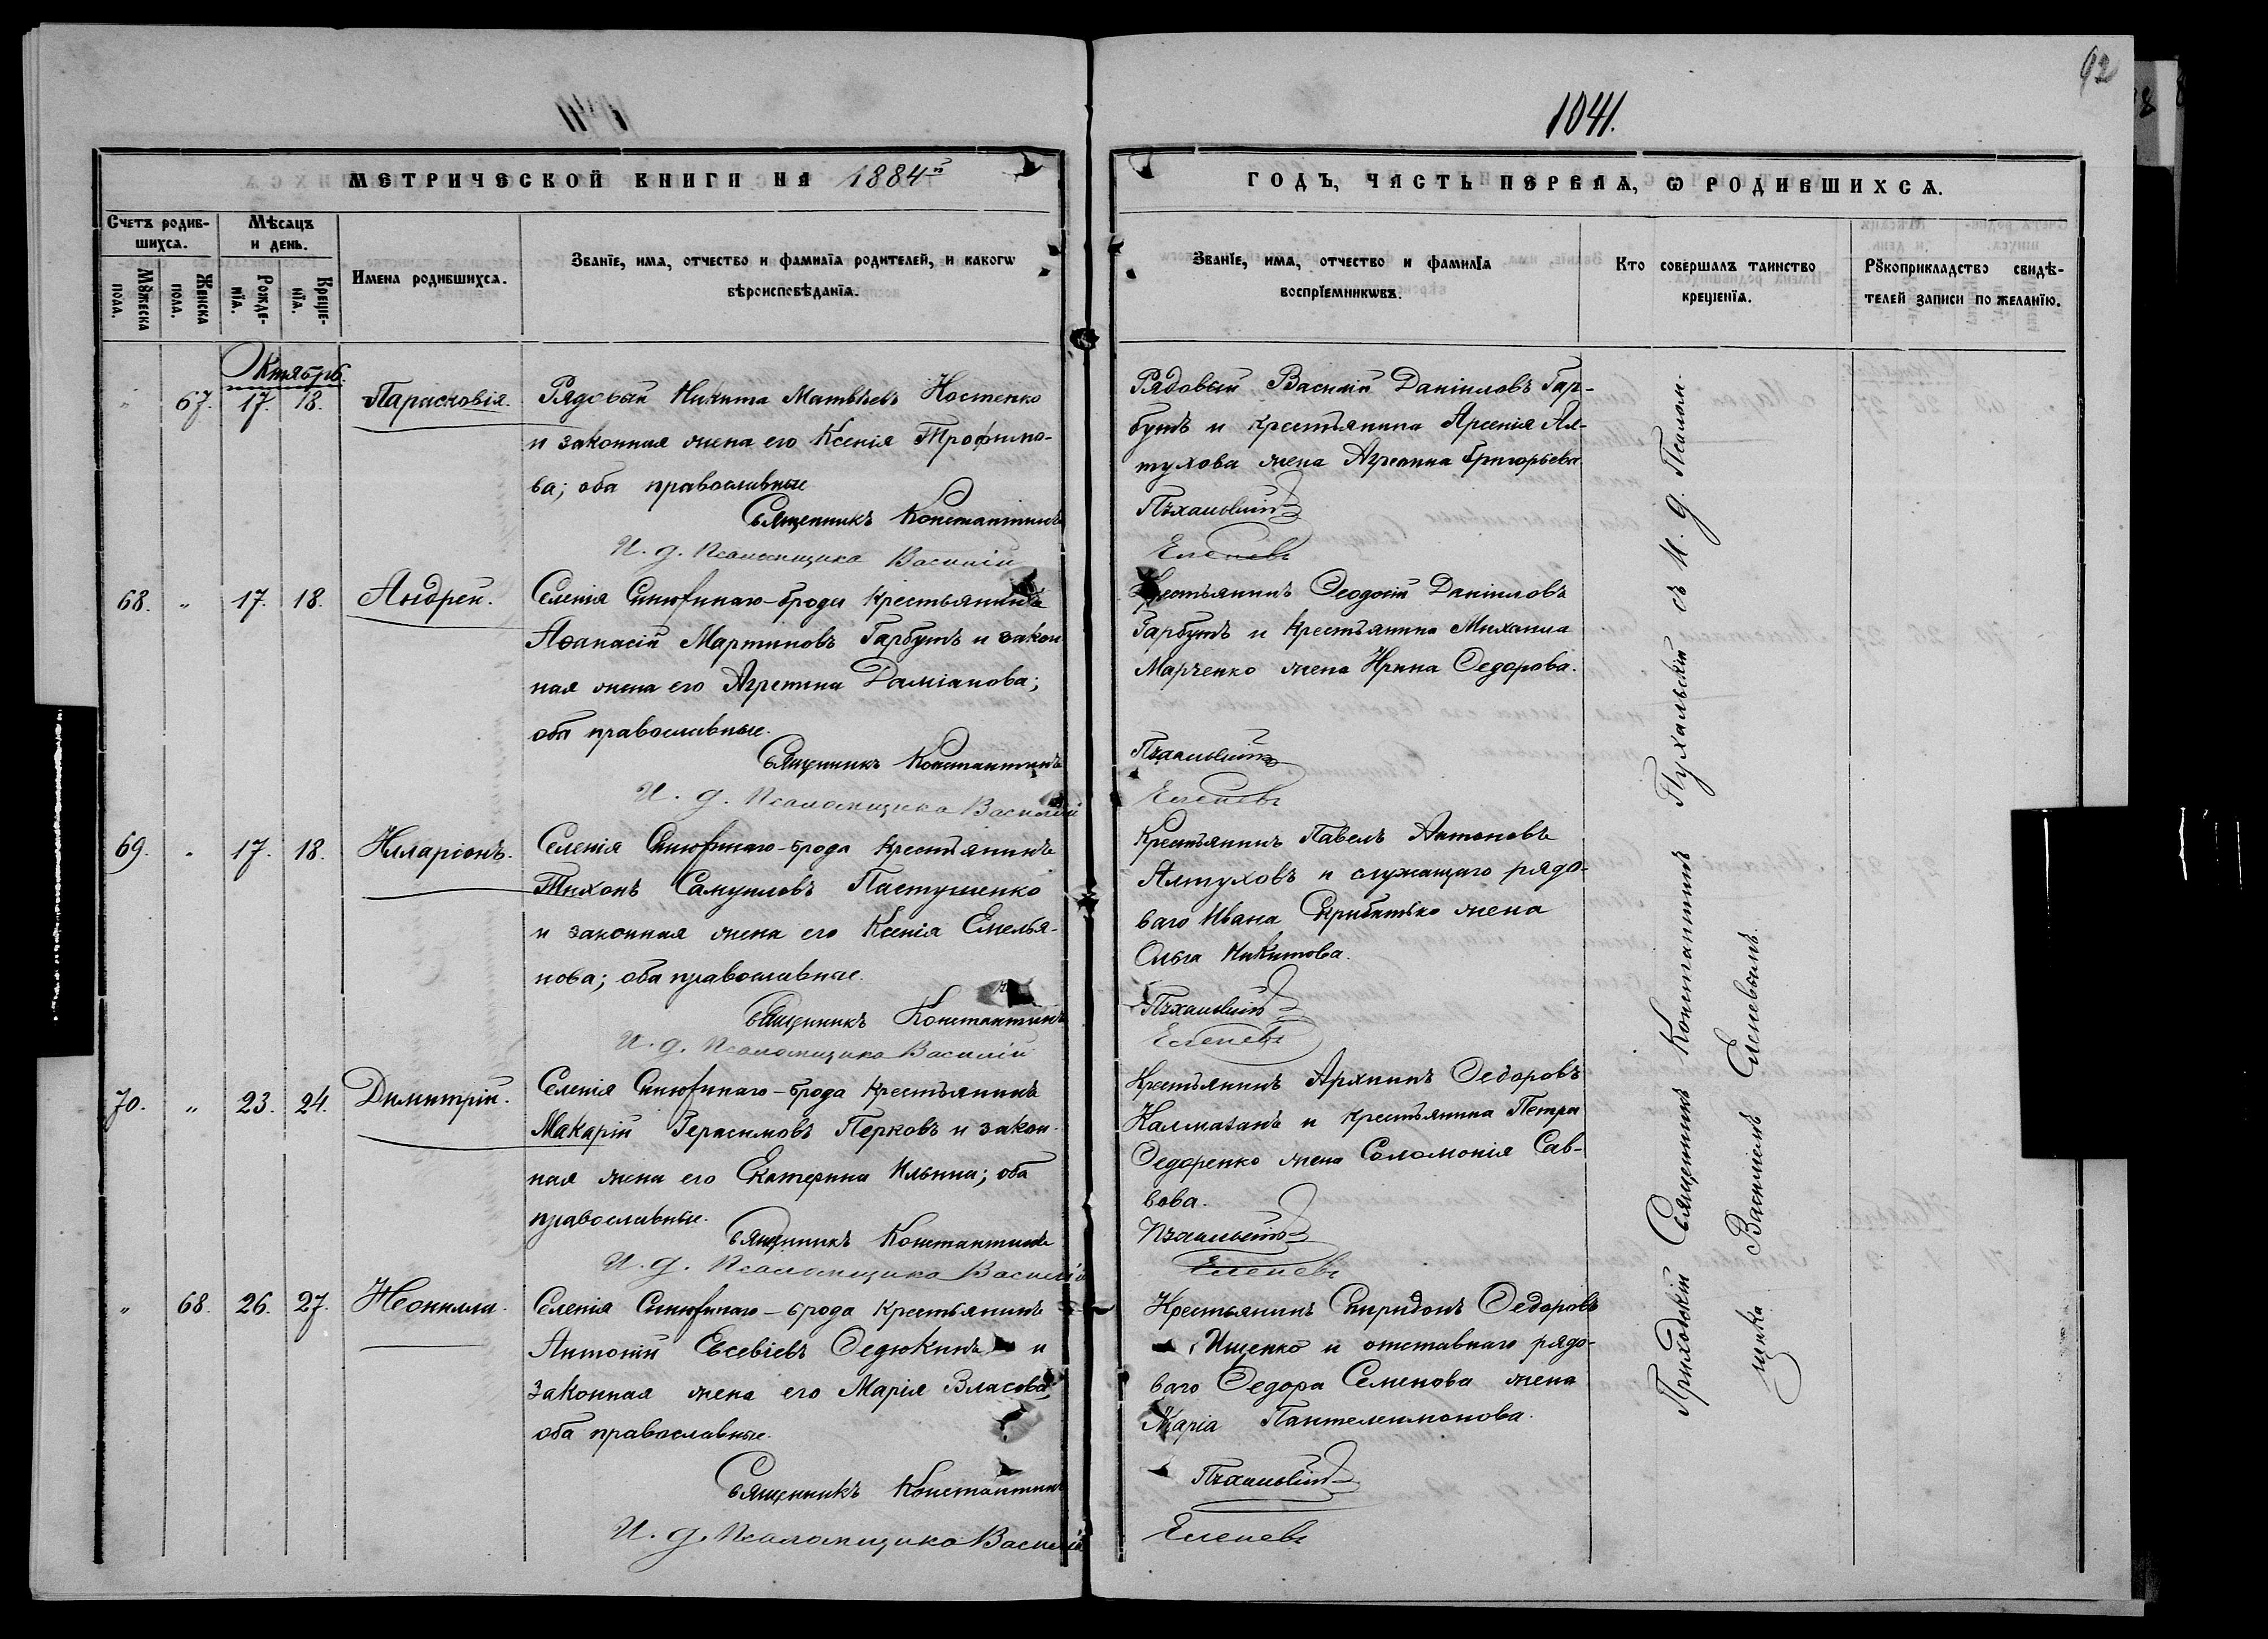 92
1041.
МЕТРИЧЕСКОЙ КНИГИ НА 1884й
ГОДЪ, ЧАСТЬ ПЕРВАЯ, Ѡ РОДИВШИХСѦ.
Счетъ родив-
шихсѧ.
Мѣсѧцъ
и день.
Мꙋжеска
пола.
Женска
пола.
Рожде-
нїѧ.
Креще-
нїѧ.
Имена родившихсѧ.
Званїе, имѧ, отчество и фамилїѧ родителей, и какогѡ
вѣроисповѣданїѧ.
Званїе, имѧ, отчество и фамилїѧ
воспрїемникѡвъ.
Кто совершалъ таинство
крещенїѧ.
Рꙋкоприкладство свидѣ-
телей записи по желанїю.
Октябрь.
" 67. 17. 18. Парасковія.
Рядовый Никита Матвѣевъ Костенко
и законная жена его Ксенія Трофимо-
ва; оба православные
Священникъ Константинъ
И. д. Псаломщика Василій
Рядовый Василій Даніиловъ Гар-
бузъ и крестьянина Арсенія Ал-
тухова жена Агрепина Григорьева.
Пухальскій
Еленевъ
68. " 17. 18. Андрей.
Селенія Синюхинаго-брода крестьянинъ
Аѳанасій Мартиновъ Гарбузъ и закон
ная жена его Агрепина Даміанова;
оба православные.
Священникъ Константинъ
И. д. Псаломщика Василій
Крестьянинъ Ѳеодосій Даніиловъ
Гарбузъ и крестьянина Михаила
Марченко жена Ирина Ѳедорова.
Пухальскій
Еленевъ
69. " 17. 18. Илларіонъ.
Селенія Синюхинаго-брода крестьянинъ
Тихонъ Самуиловъ Пастушенко
и законная жена его Ксенія Емелья-
нова; оба православные.
Священникъ Константинъ
И. д. Псаломщика Василій
Крестьянинъ Павелъ Антоновъ
Алтуховъ и служащаго рядо-
ваго Ивана жена
Ольга Никитова.
Пухальскій
Еленевъ
70. " 23. 24. Димитрій.
Селенія Синюхинаго-брода крестьянинъ
Макарій Герасимовъ Перковъ и закон-
ная жена его Екатерина Ильина; оба
православные.
Священникъ Константинъ
И. д. Псаломщика Василій
Крестьянинъ Архипъ Ѳедоровъ
Калмазанъ и крестьянина Петра
Ѳедоренко жена Соломонія Сав-
вова.
Пухальскій
Еленевъ
" 68. 26. 27. Неонилла.
Селенія Синюхинаго-брода крестьянинъ
Антоній Евсевіевъ Ѳедюкинъ и
законная жена его Марія Власова;
оба православные.
Священникъ Константинъ
И. д. Псаломщика Василій
Крестьянинъ Спиридонъ Ѳедоровъ
Ищенко и отставнаго рядо-
ваго Ѳедора Семенова жена
Марія Пантелеимонова.
Пухальскій
Еленевъ
Приходскій Священникъ Константинъ Пухальскій съ И. д. Псалом-
щика Василіемъ Еленевымъ.